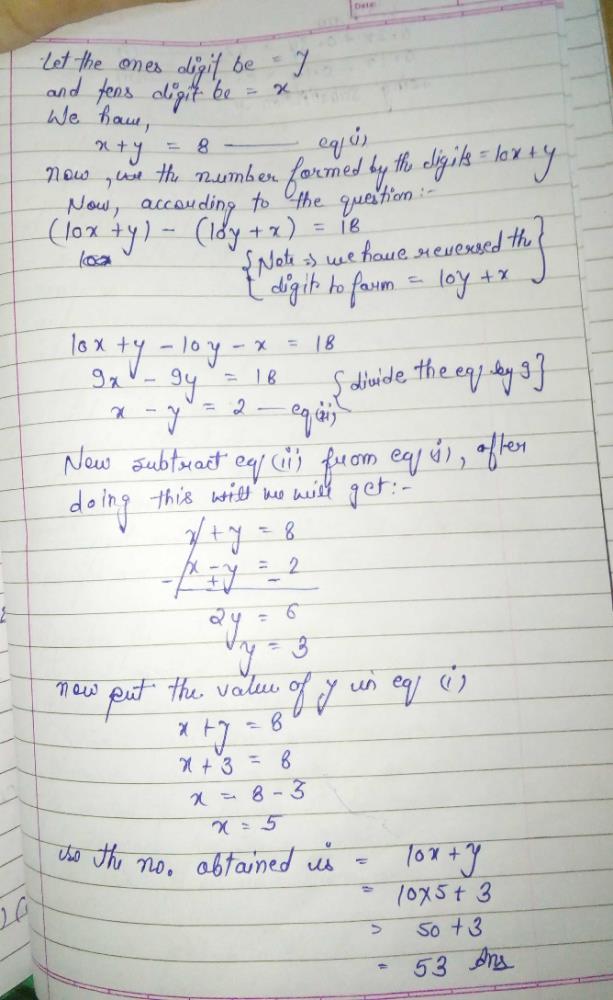 Date:
Let the ones digit be = y
and tens digit be = x
We have,
x + y = 8 ——— eq(i)
Now, the number formed by the digits = 10x + y
Now, according to the question:-
(10x + y) - (10y + x) = 18
10x
{Note => we have reversed the
digit to form = 10y + x}
10x + y - 10y - x = 18
9x - 9y = 18 {divide the eq by 9}
x - y = 2 — eq(ii)
Now subtract eq(ii) from eq(i), after
doing this will we will get:-
x + y = 8
x - y = 2
- + -
2y = 6
y = 3
now put the value of y in eq (i)
x + y = 8
x + 3 = 8
x = 8 - 3
x = 5
so the no. obtained is = 10x + y
= 10x5 + 3
= 50 + 3
= 53 Ans